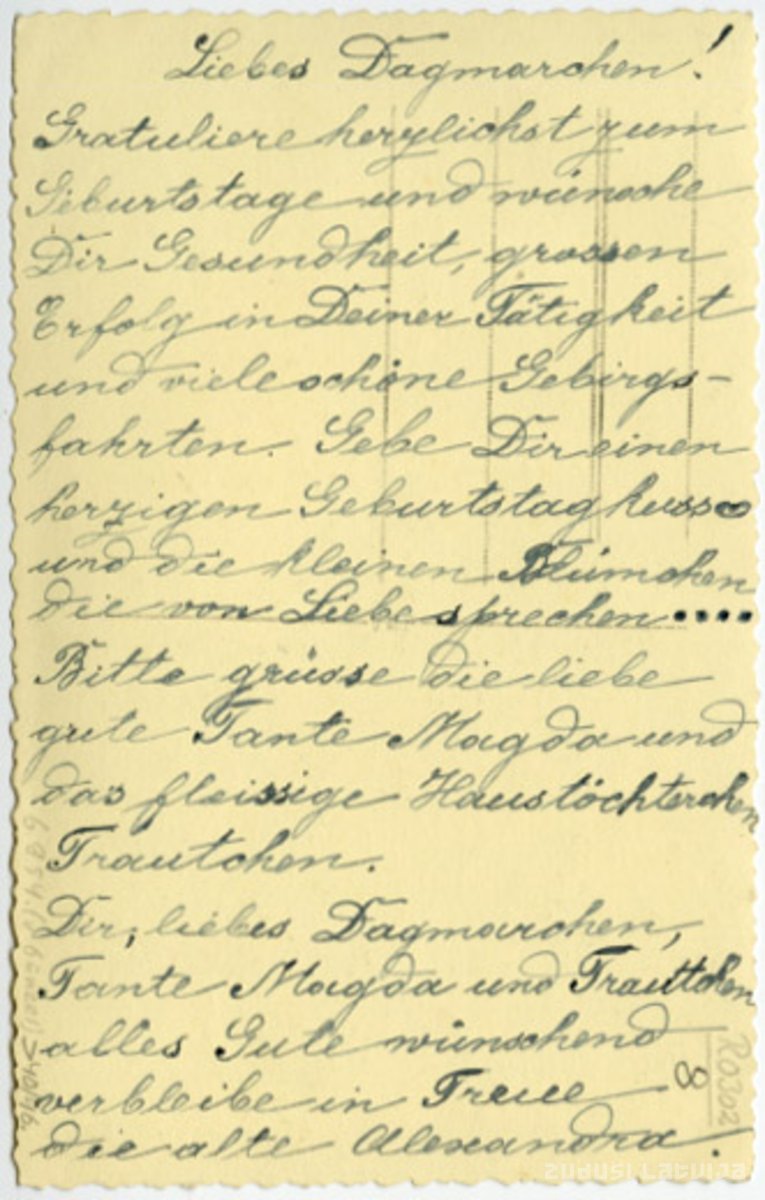 Liebes Dagmarchen!
Gratuliere herzlichst zum
Geburtstage und wünsche
Dir Gesundheit, grossen
Erfolg in Deiner Tätigkeit
und viele schöne Gebirgs-
fahrten. Gebe Dir einen
herzigen Geburtstagkuss
und die kleinen Blümchen
die von Liebe sprechen ....
Bitte grüsse die liebe
gute Tante Magda und
das fleissige Haustöchterchen
Trautchen.
Dir, liebes Dagmarchen,
Tante Magda und Trauttchen
alles Gute wünschend
verbleibe in Treue
die alte Alexandra.
8
R0302
zudusi latvija